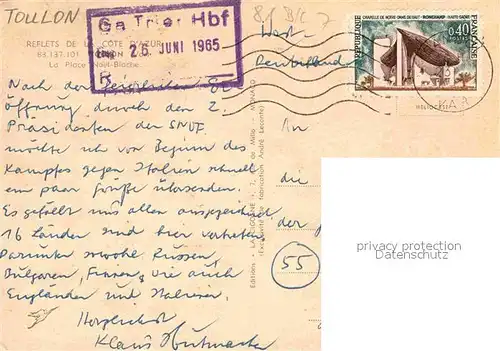 TOULLON
Ga Trier Hbf
28. JUNI 1965
R
8.1 B/C 7
REFLETS DE LA CÔTE D'AZUR
83.137.101 TOULON
La Place Noël-Blache
CHAPELLE DE NOTRE-DAME-DU-HAUT - RONCHAMP - HAUTE-SAÔNE
0,40
POSTES
RÉPUBLIQUE FRANÇAISE
West-
Deutschland
Nach der feierlichen Er-
öffnung durch den 2.
Präsidenten der
möchte ich vor Beginn des
Kampfes gegen Italien schnell
ein paar Grüße übersenden.
Es gefällt uns allen ausgezeichnet
16 Länder sind hier vertreten
Darunter sowohl Russen,
Bulgaren, Finnen, wie auch
Engländer und Italiener.
Herzlichst
Klaus
An
die
der
55
(Exclusivité de fabrication André Leconte)
privacy protection
Datenschutz